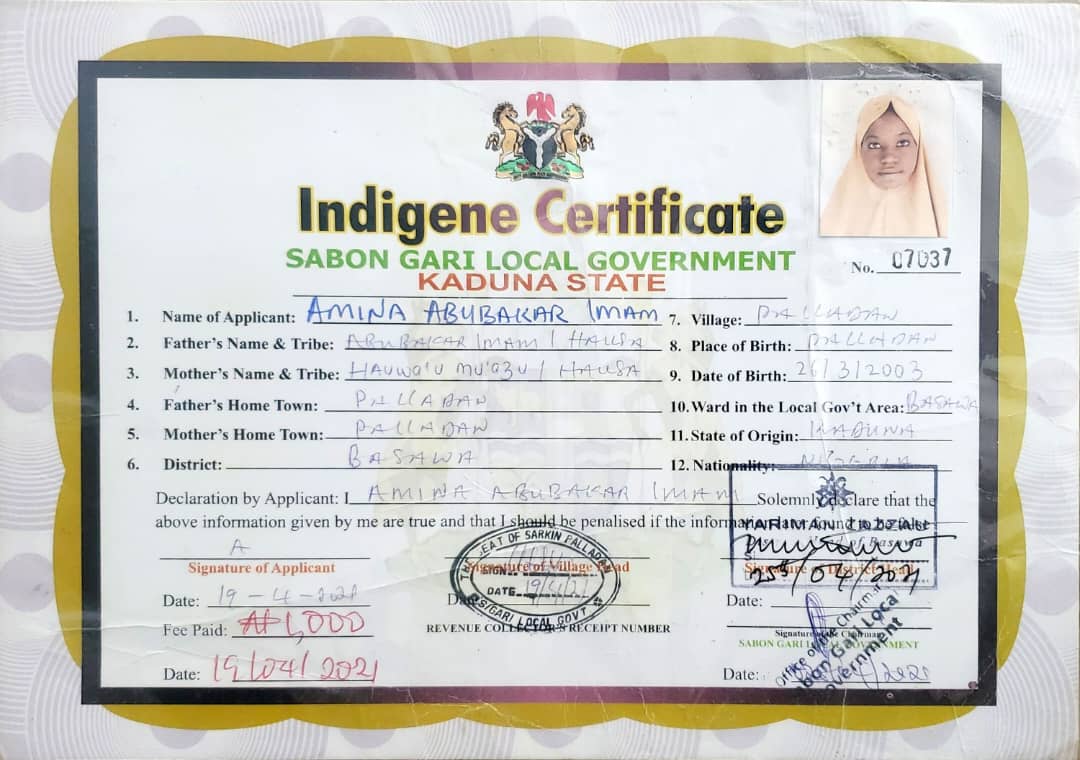 Indigene Certificate
SABON GARI LOCAL GOVERNMENT
KADUNA STATE
No. 07037
1. Name of Applicant: AMINA ABUBAKAR IMAM
2. Father's Name & Tribe: ABUBAKAR IMAM / HAUSA
3. Mother's Name & Tribe: HAUWA'U MU'AZU / HAUSA
4. Father's Home Town: PALLADAN
5. Mother's Home Town: PALLADAN
6. District: BASAWA
7. Village: PALLADAN
8. Place of Birth: PALLADAN
9. Date of Birth: 26/3/2003
10. Ward in the Local Gov't Area: BASAWA
11. State of Origin: KADUNA
12. Nationality: NIGERIA
Declaration by Applicant: I AMINA ABUBAKAR IMAM Solemnly declare that the
above information given by me are true and that I should be penalised if the information later found to be false
A
Signature of Applicant
Signature of Village Head
Signature of District Head
Date: 19-4-2021
Date:
Date:
Fee Paid: ₦1,000
REVENUE COLLECTOR'S RECEIPT NUMBER
Signature of the Chairman
SABON GARI LOCAL GOVERNMENT
Date: 19/04/2021
Date:
THE SEAT OF SARKIN PALLADAN
SIGN.
DATE 19/4/21
S/GARI LOCAL GOVT
YARIMAN ZAZZAU
Head of Basawa
/04/2021
Office of the Chairman
Sabon Gari Local
Government